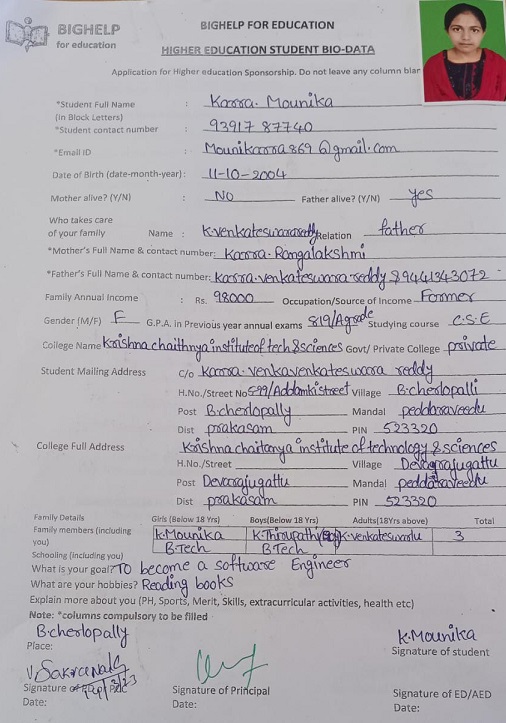 BIGHELP
for education
BIGHELP FOR EDUCATION
HIGHER EDUCATION STUDENT BIO-DATA
Application for Higher education Sponsorship. Do not leave any column blan
*Student Full Name : Karra. Mounika
(in Block Letters)
*Student contact number : 93917 87740
*Email ID : Mounikarra869@gmail.com
Date of Birth (date-month-year) : 11-10-2004
Mother alive? (Y/N) : NO Father alive? (Y/N) yes
Who takes care
of your family Name : K.venkateswarareddy Relation father
*Mother's Full Name & contact number: Karra-Rangalakshmi
*Father's Full Name & contact number: karra.venkateswara reddy & 9441343072
Family Annual Income : Rs. 98000 Occupation/Source of Income Farmer
Gender (M/F) F G.P.A. in Previous year annual exams 819/A grade Studying course C.S.E
College Name Krishna chaithnya institute of tech & sciences Govt/ Private College private
Student Mailing Address C/o karra venkavenkateswara reddy
H.No./Street No 599/Addanki street Village B.cherlopalli
Post B.cherlopally Mandal peddaraveedu
Dist prakasam PIN 523320
College Full Address Krishna chaitanya institute of technology & sciences
H.No./Street Village Devarajugattu
Post Devarajugattu Mandal peddaraveedu
Dist prakasam PIN 523320
Family Details Girls (Below 18 Yrs) Boys(Below 18 Yrs) Adults(18Yrs above) Total
Family members (including you) K.Mounika K.Thirupathy K.venkateswarlu 3
Schooling (including you) B.Tech B.Tech
What is your goal? TO become a software Engineer
What are your hobbies? Reading books
Explain more about you (PH, Sports, Merit, Skills, extracurricular activities, health etc)
Note: *columns compulsory to be filled
B.cherlopally K.Mounika
Place: Signature of student
Signature of Signature of Principal Signature of ED/AED
Date: Date: Date: